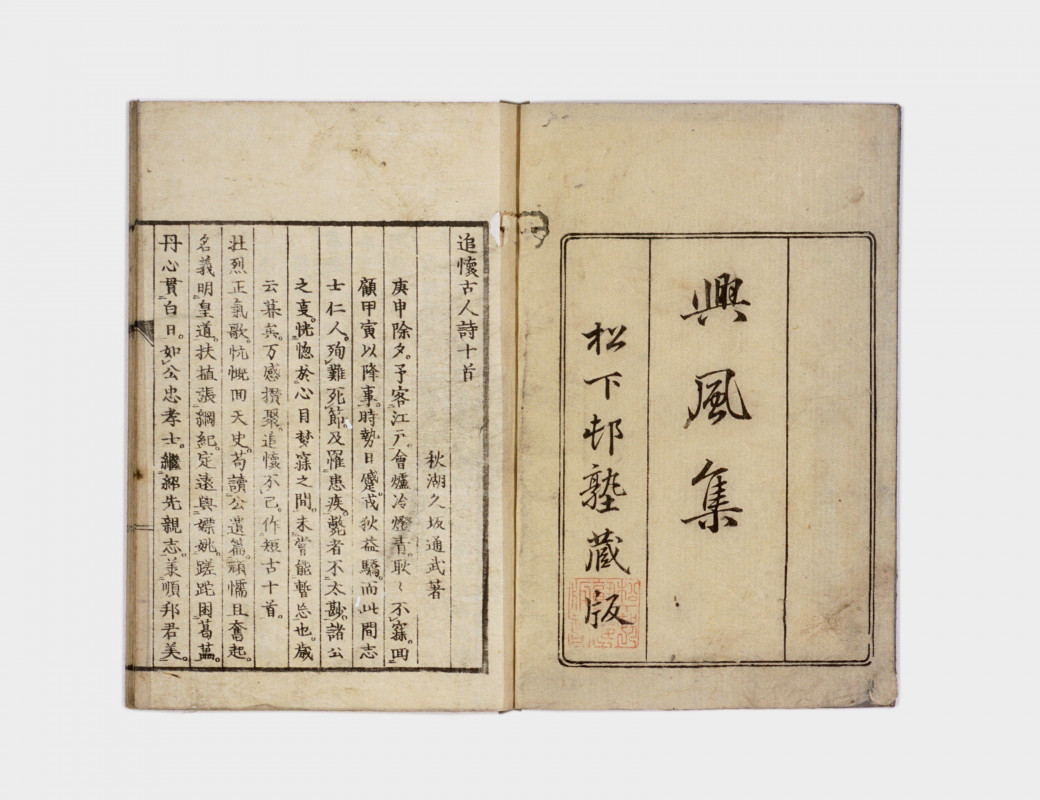 興風集
松下邨塾藏版
追懷古人詩十首
秋湖久坂通武著
庚申除夕。予客江戶。會爐冷燈青。耿〻不寐。回
顧甲寅以降事。時勢日蹙。戎狄益驕。而此間志
士仁人。殉難死節。及罹患疾。斃者不太尠。諸公
之事。恍惚於心目夢寐之間。未嘗能暫忘也。歲
云暮矣。万感攢聚。追懷不已。作短古十首。
壯烈正氣歌。忼慨回天史。苟讀公遺篇。頑懦且奮起。
名義明皇道。扶植張綱紀。定遠與嫖姚。蹉跎困葛藟。
丹心貫白日。如公忠孝士。繼紹先親志。兼順邦君美。